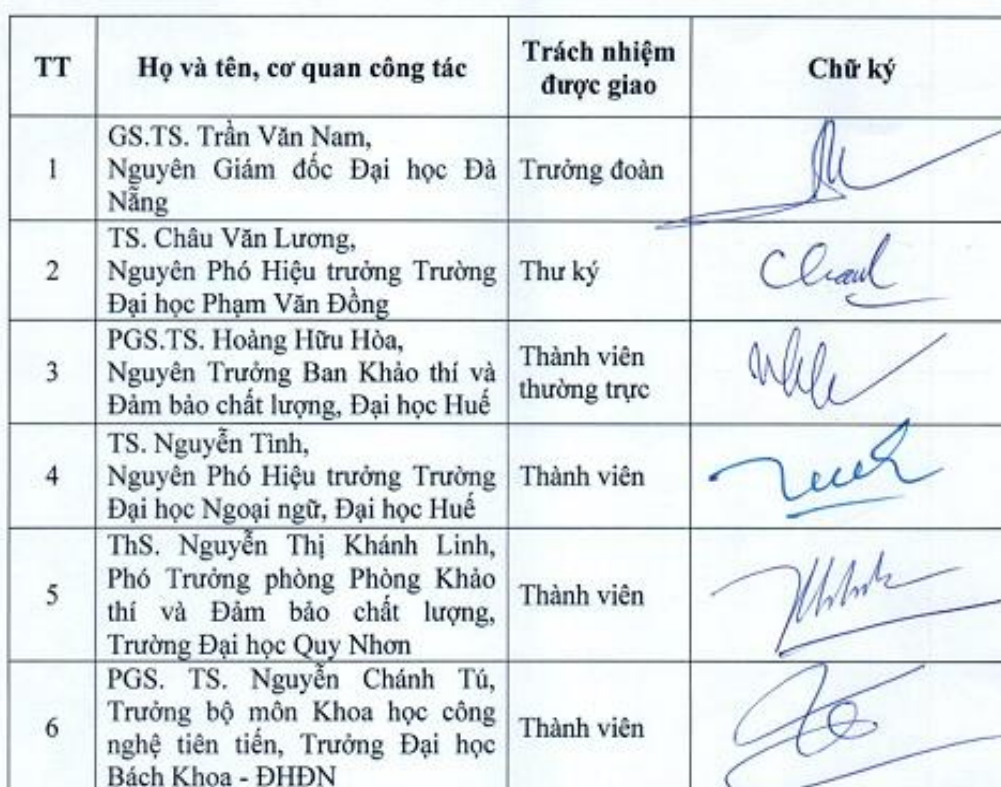 TT
Họ và tên, cơ quan công tác
Trách nhiệm
được giao
Chữ ký
1
GS.TS. Trần Văn Nam,
Nguyên Giám đốc Đại học Đà
Nẵng
Trưởng đoàn
2
TS. Châu Văn Lương,
Nguyên Phó Hiệu trưởng Trường
Đại học Phạm Văn Đồng
Thư ký
3
PGS.TS. Hoàng Hữu Hòa,
Nguyên Trưởng Ban Khảo thí và
Đảm bảo chất lượng, Đại học Huế
Thành viên
thường trực
4
TS. Nguyễn Tình,
Nguyên Phó Hiệu trưởng Trường
Đại học Ngoại ngữ, Đại học Huế
Thành viên
5
ThS. Nguyễn Thị Khánh Linh,
Phó Trưởng phòng Phòng Khảo
thí và Đảm bảo chất lượng,
Trường Đại học Quy Nhơn
Thành viên
6
PGS. TS. Nguyễn Chánh Tú,
Trưởng bộ môn Khoa học công
nghệ tiên tiến, Trường Đại học
Bách Khoa - ĐHĐN
Thành viên